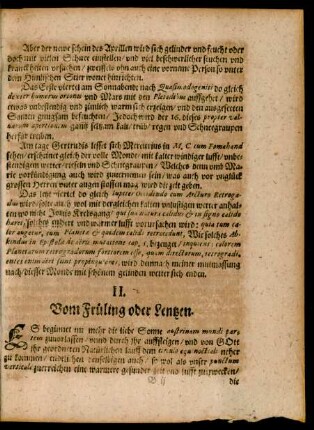 Aber der newe schein des Aprillen wird sich gelinder und feucht oder
doch mit vielen Schaur einstellen / und viel beschwerlicher seuchen und
kranckheiten verursachen / zweiffels ohn auch eine vorneme Person so unter
dem Himlischen Stier wonet hinrichten.
Das Erste viertel am Sonnabendt nach Quasimodogeniti do gleich
dexter humerus orionis und Mars mit den auffgehet / wird
etwas unbestendig und zimlich warm sich erzeigen / und den ausgeseeten
Samen gnugsam befeuchten / Jedoch wird der 16. dieses propter val-
varum apertionem gantz seltzam kalt / trüb / regen und Schneegraupen
herfür treiben.
Am tage Gertrudis lesset sich Mercurius in M. C. cum Fomahand
sehen / erscheinet gleich der volle Monde mit kalter windiger lufft / unbe-
stendigem wetter / reiffen und Schlosgraupen / Welches denn und Ma-
rie verkündigung auch sein wird / was auch vor unglück
grossen Herren unter augen stossen mag wird die zeit geben.
Das letzte viertel do gleich Jupiter Arcturo Retrogra-
dus auch wol mit dergleichen kalten unlustigen wetter anhal-
ten wo nicht Jovis Krebsgang / qui in natura calidus & in signo calido
haret, solches endert und warmer lufft verursachen wird: quia tum ca-
lor augetur, cum Planeta & quidem calidi retrocedunt, Wie solches Al-
kindus in Epistola de aëris mutatione cap. 1. bezeuget / inquiens: calorem
Planetarum retrogradorum fortiorem esse, quam directorum, retrogradi,
enim ante sunt propinquiores, wird demnach meiner mutmassung
nach / dieser Monde mit schönem gelinden wetter sich enden.
II.
Vom Früling oder Lentzen.
ES beginnet nu mehr die liebe Sonne austrinam mundi par-
tem zuverlassen / unnd durch ihr auffsteigen / und von GOtt
ihr geordneten Natürlichen lauff dem circulo æquinoctiali neher
zu kommen / endtlichen denselbigen auch / so wol als unser punctum
verticale zuerreichen eine warmere gesunder zeit und lufft zuzwecken /
B ij
die